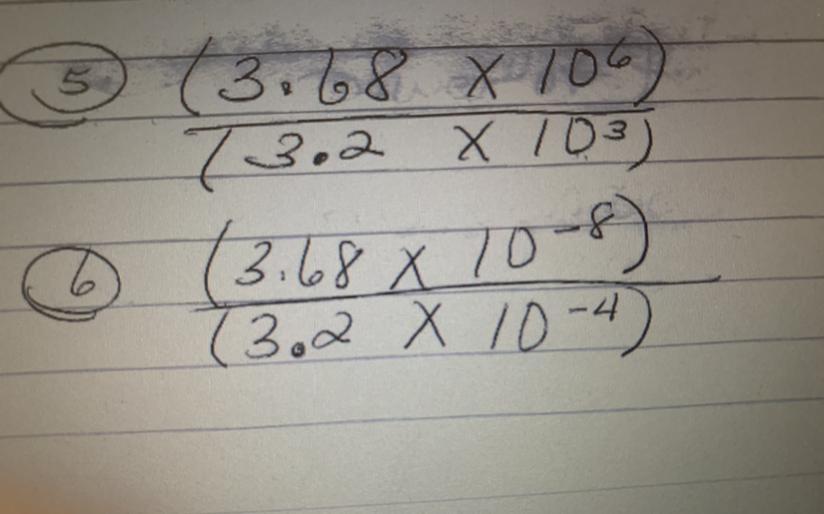 5 (3.68 X 10⁶)
(3.2 X 10³)
6 (3.68 X 10⁻⁸)
(3.2 X 10⁻⁴)